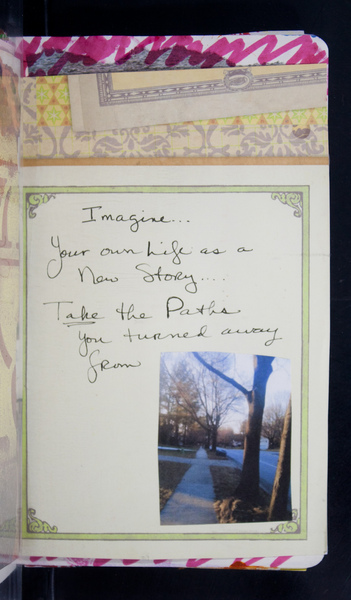 Imagine...
Your own Life as a
New Story....
Take the Paths
you turned away
from